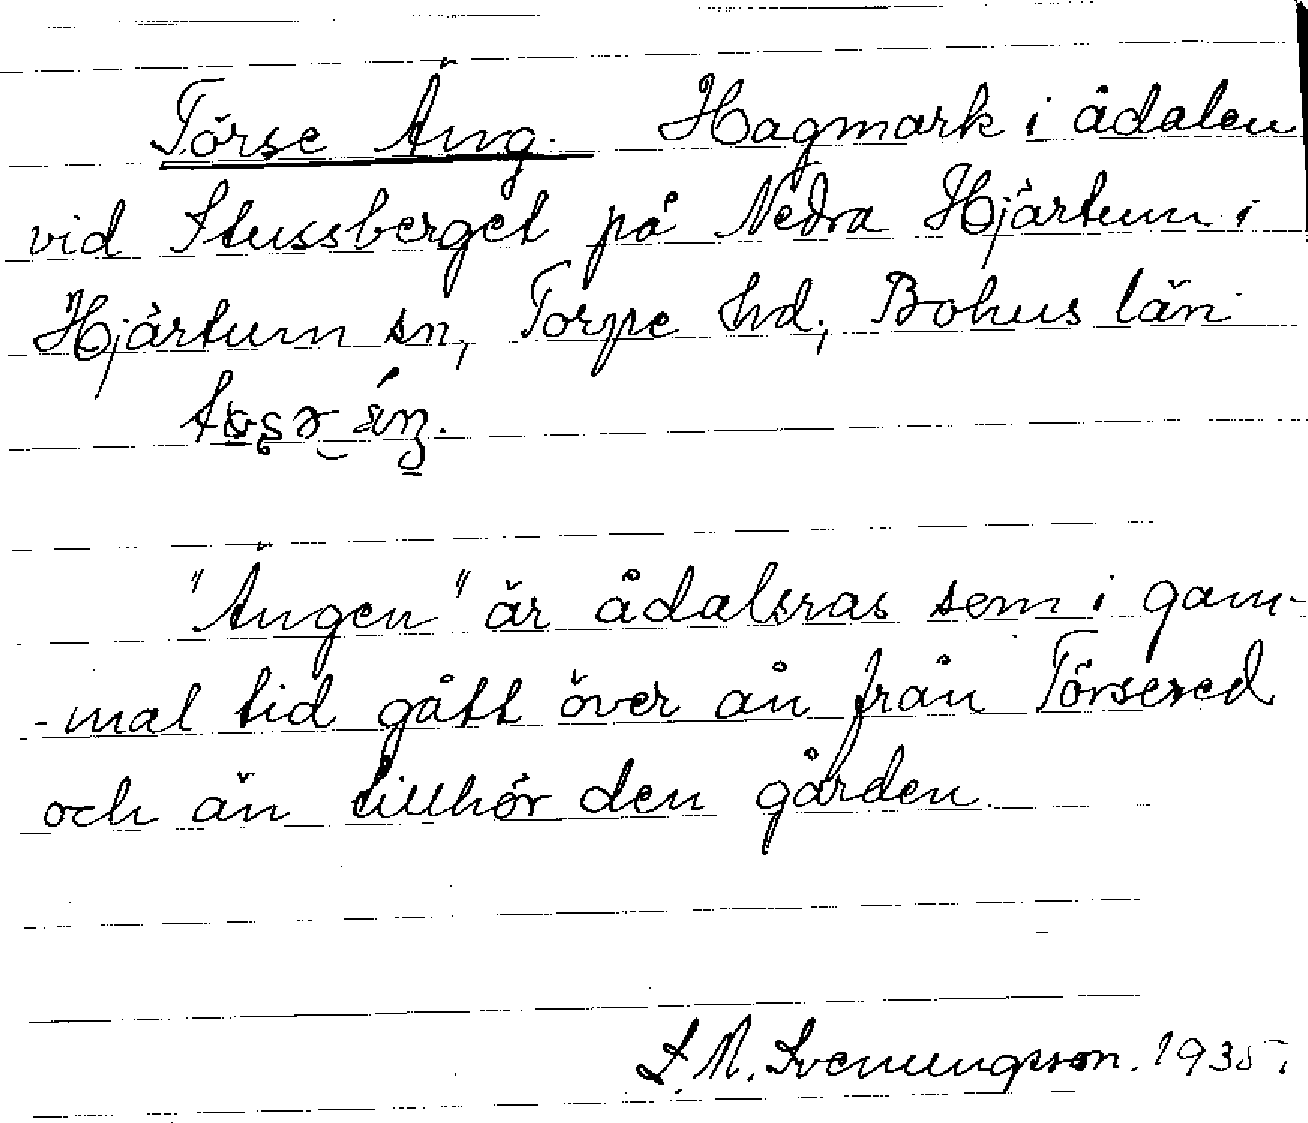 Törse Äng. Hagmark i ådalen
vid Stussberget på Nedra Hjärtum i
Hjärtum sn, Torpe hd, Bohus län
"Ängen" är ådalsras som i gam-
-mal tid gått över ån från Törsered
och än tillhör den gården
L. M. Svenungsson. 1935.